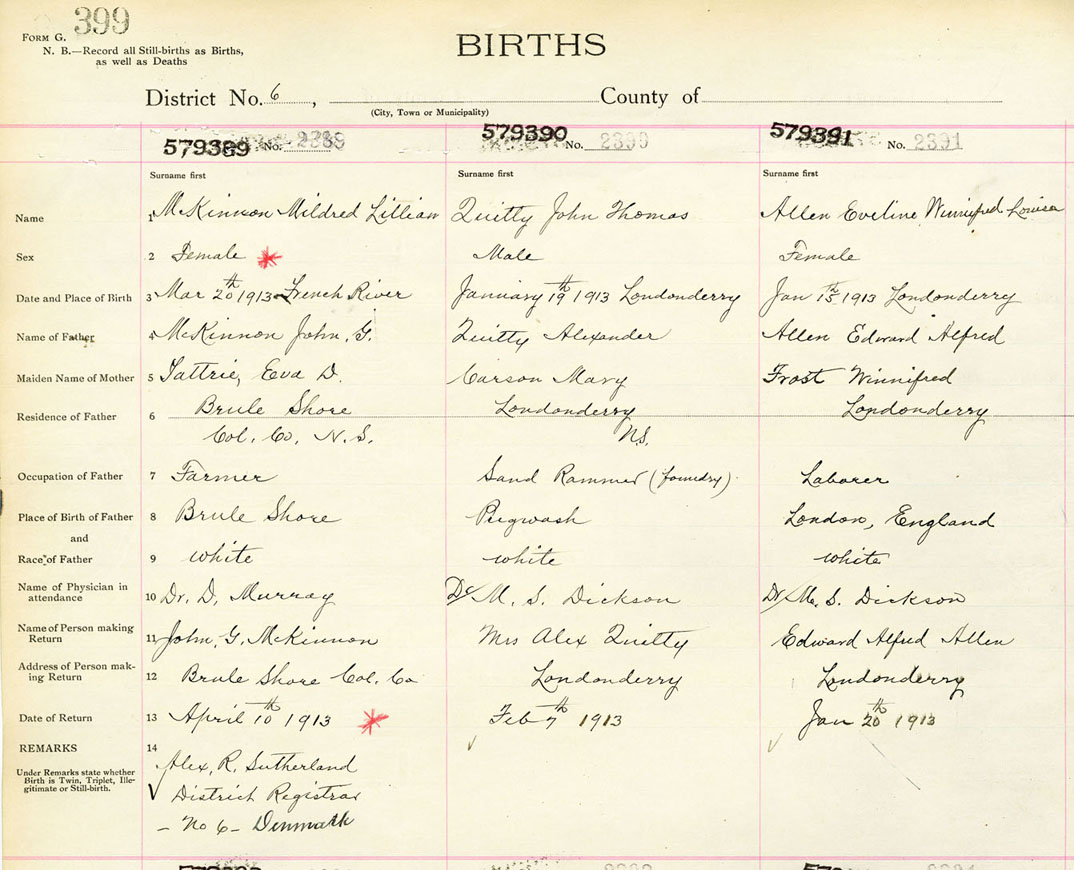 399
FORM G.
N. B.—Record all Still-births as Births,
as well as Deaths
BIRTHS
District No. 6, County of
(City, Town or Municipality)
579389 No. 2389 579390 No. 2390 579391 No. 2391
Surname first Surname first Surname first
Name 1 McKinnon Mildred Lillian Quitty John Thomas Allen Eveline Winnifred Louisa
Sex 2 Female Male Female
Date and Place of Birth 3 Mar 20th 1913 French River January 19th 1913 Londonderry Jan 15th 1913 Londonderry
Name of Father 4 McKinnon John, G. Quitty Alexander Allen Edward Alfred
Maiden Name of Mother 5 Tattrie, Eva D. Carson Mary Frost Winnifred
Residence of Father 6 Brule Shore Londonderry Londonderry
Col. Co, N. S. N.S.
Occupation of Father 7 Farmer Sand Rammer (foundry) Laborer
Place of Birth of Father 8 Brule Shore Pugwash London, England
and
Race of Father 9 white white white
Name of Physician in
attendance 10 Dr. D, Murray Dr M. S. Dickson Dr M. S. Dickson
Name of Person making
Return 11 John, G. McKinnon Mrs Alex Quitty Edward Alfred Allen
Address of Person mak-
ing Return 12 Brule Shore Col. Co Londonderry Londonderry
Date of Return 13 April 10th 1913 Feb 7th 1913 Jan 20th 1913
REMARKS 14
Under Remarks state whether
Birth is Twin, Triplet, Ille-
gitimate or Still-birth.
Alex, R. Sutherland
District Registrar
– No 6 – Denmark